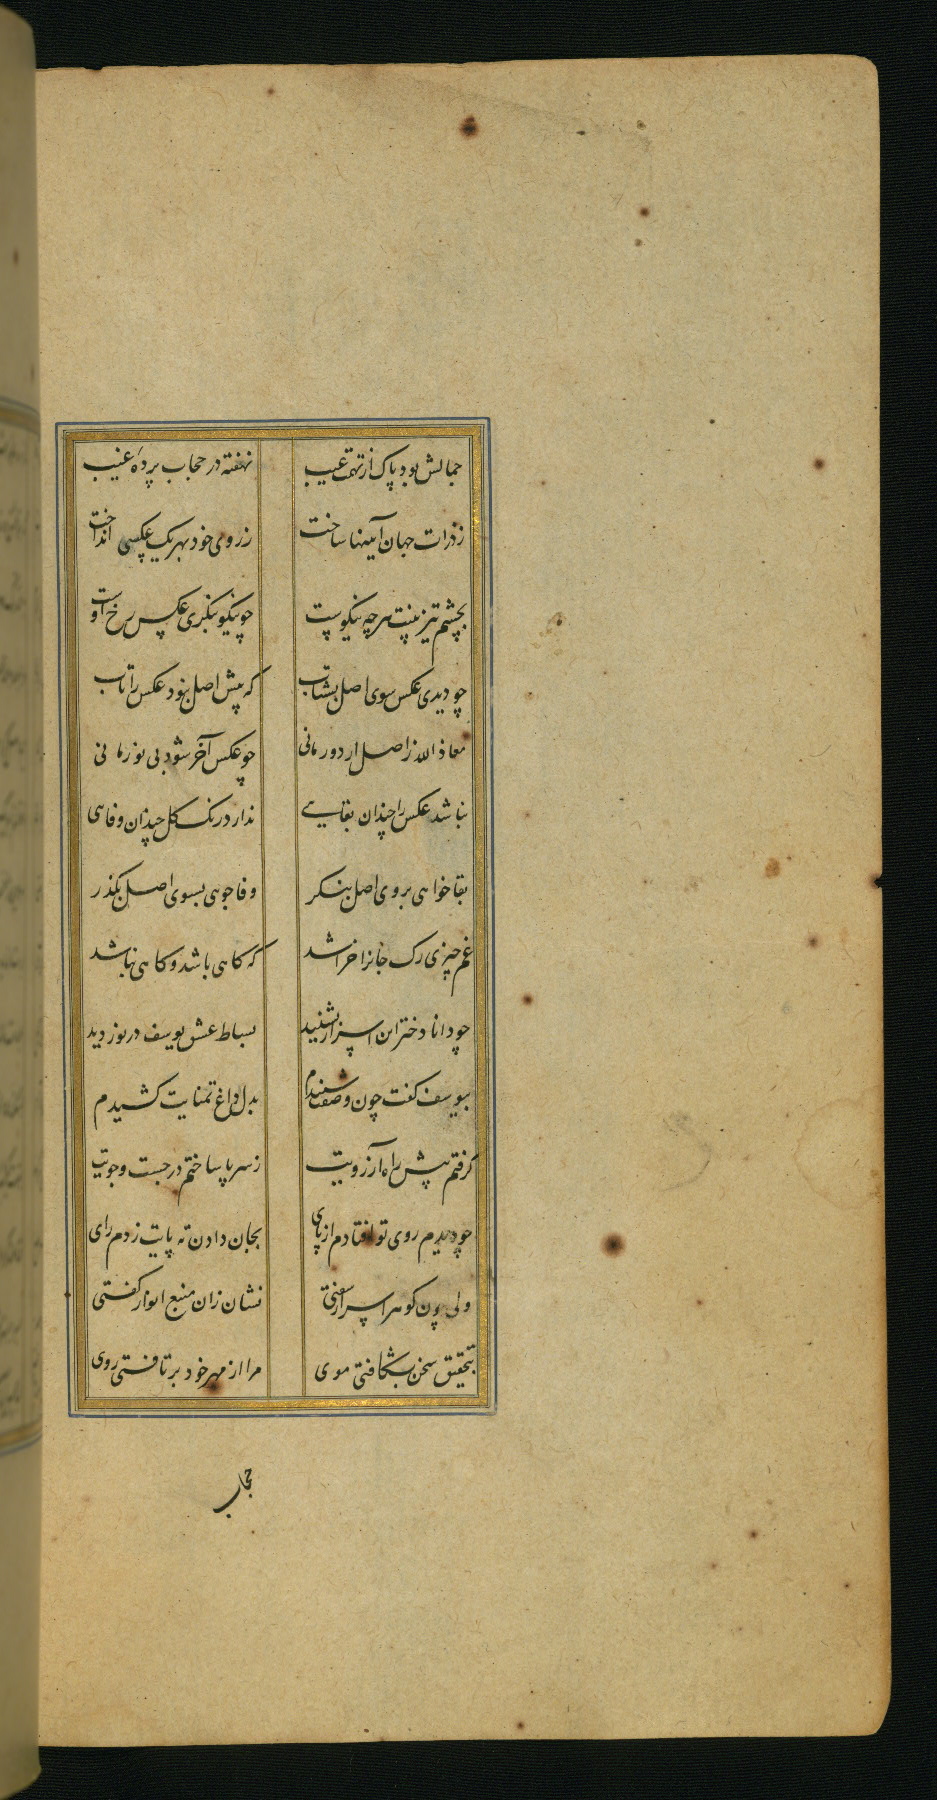 جمالش بود پاک از تهمت عیب نهفته در حجاب پرده غیب
ز ذرات جهان آیینها ساخت ز روی خود بهر یک عکسی انداخت
بچشم تیزبینت هرچه نیکوست چو نیکو بنکری عکس رخ اوست
چو دیدی عکس سوی اصل بشتاب که پیش اصل نبود عکس را تاب
معاذ الله ز اصل ار دور مانی چو عکس آخر شود بی نور مانی
نباشد عکس را چندان بقایی ندارد رنک کل چندان وفایی
بقا خواهی بروی اصل بنکر وفا جویی بسوی اصل بکذر
غم چیزی رک جانرا خراشد که کاهی باشد و کاهی نباشد
چو دانا دختر این اسرار بشنید بساط عشق یوسف در نوردید
بیوسف کفت چون وصفت شنیدم بدل داغ تمنایت کشیدم
کرفتم پیش راه آرزویت ز سر پا ساختم در جست وجویت
چو دیدم روی تو افتادم از پای بجان دادن ته پایت زدم رای
ولی چون کوهر اسرار سفتی نشان زان منبع انوار کفتی
بتحقیق سخن بشکافتی موی مرا از مهر خود برتافتی روی
حجاب